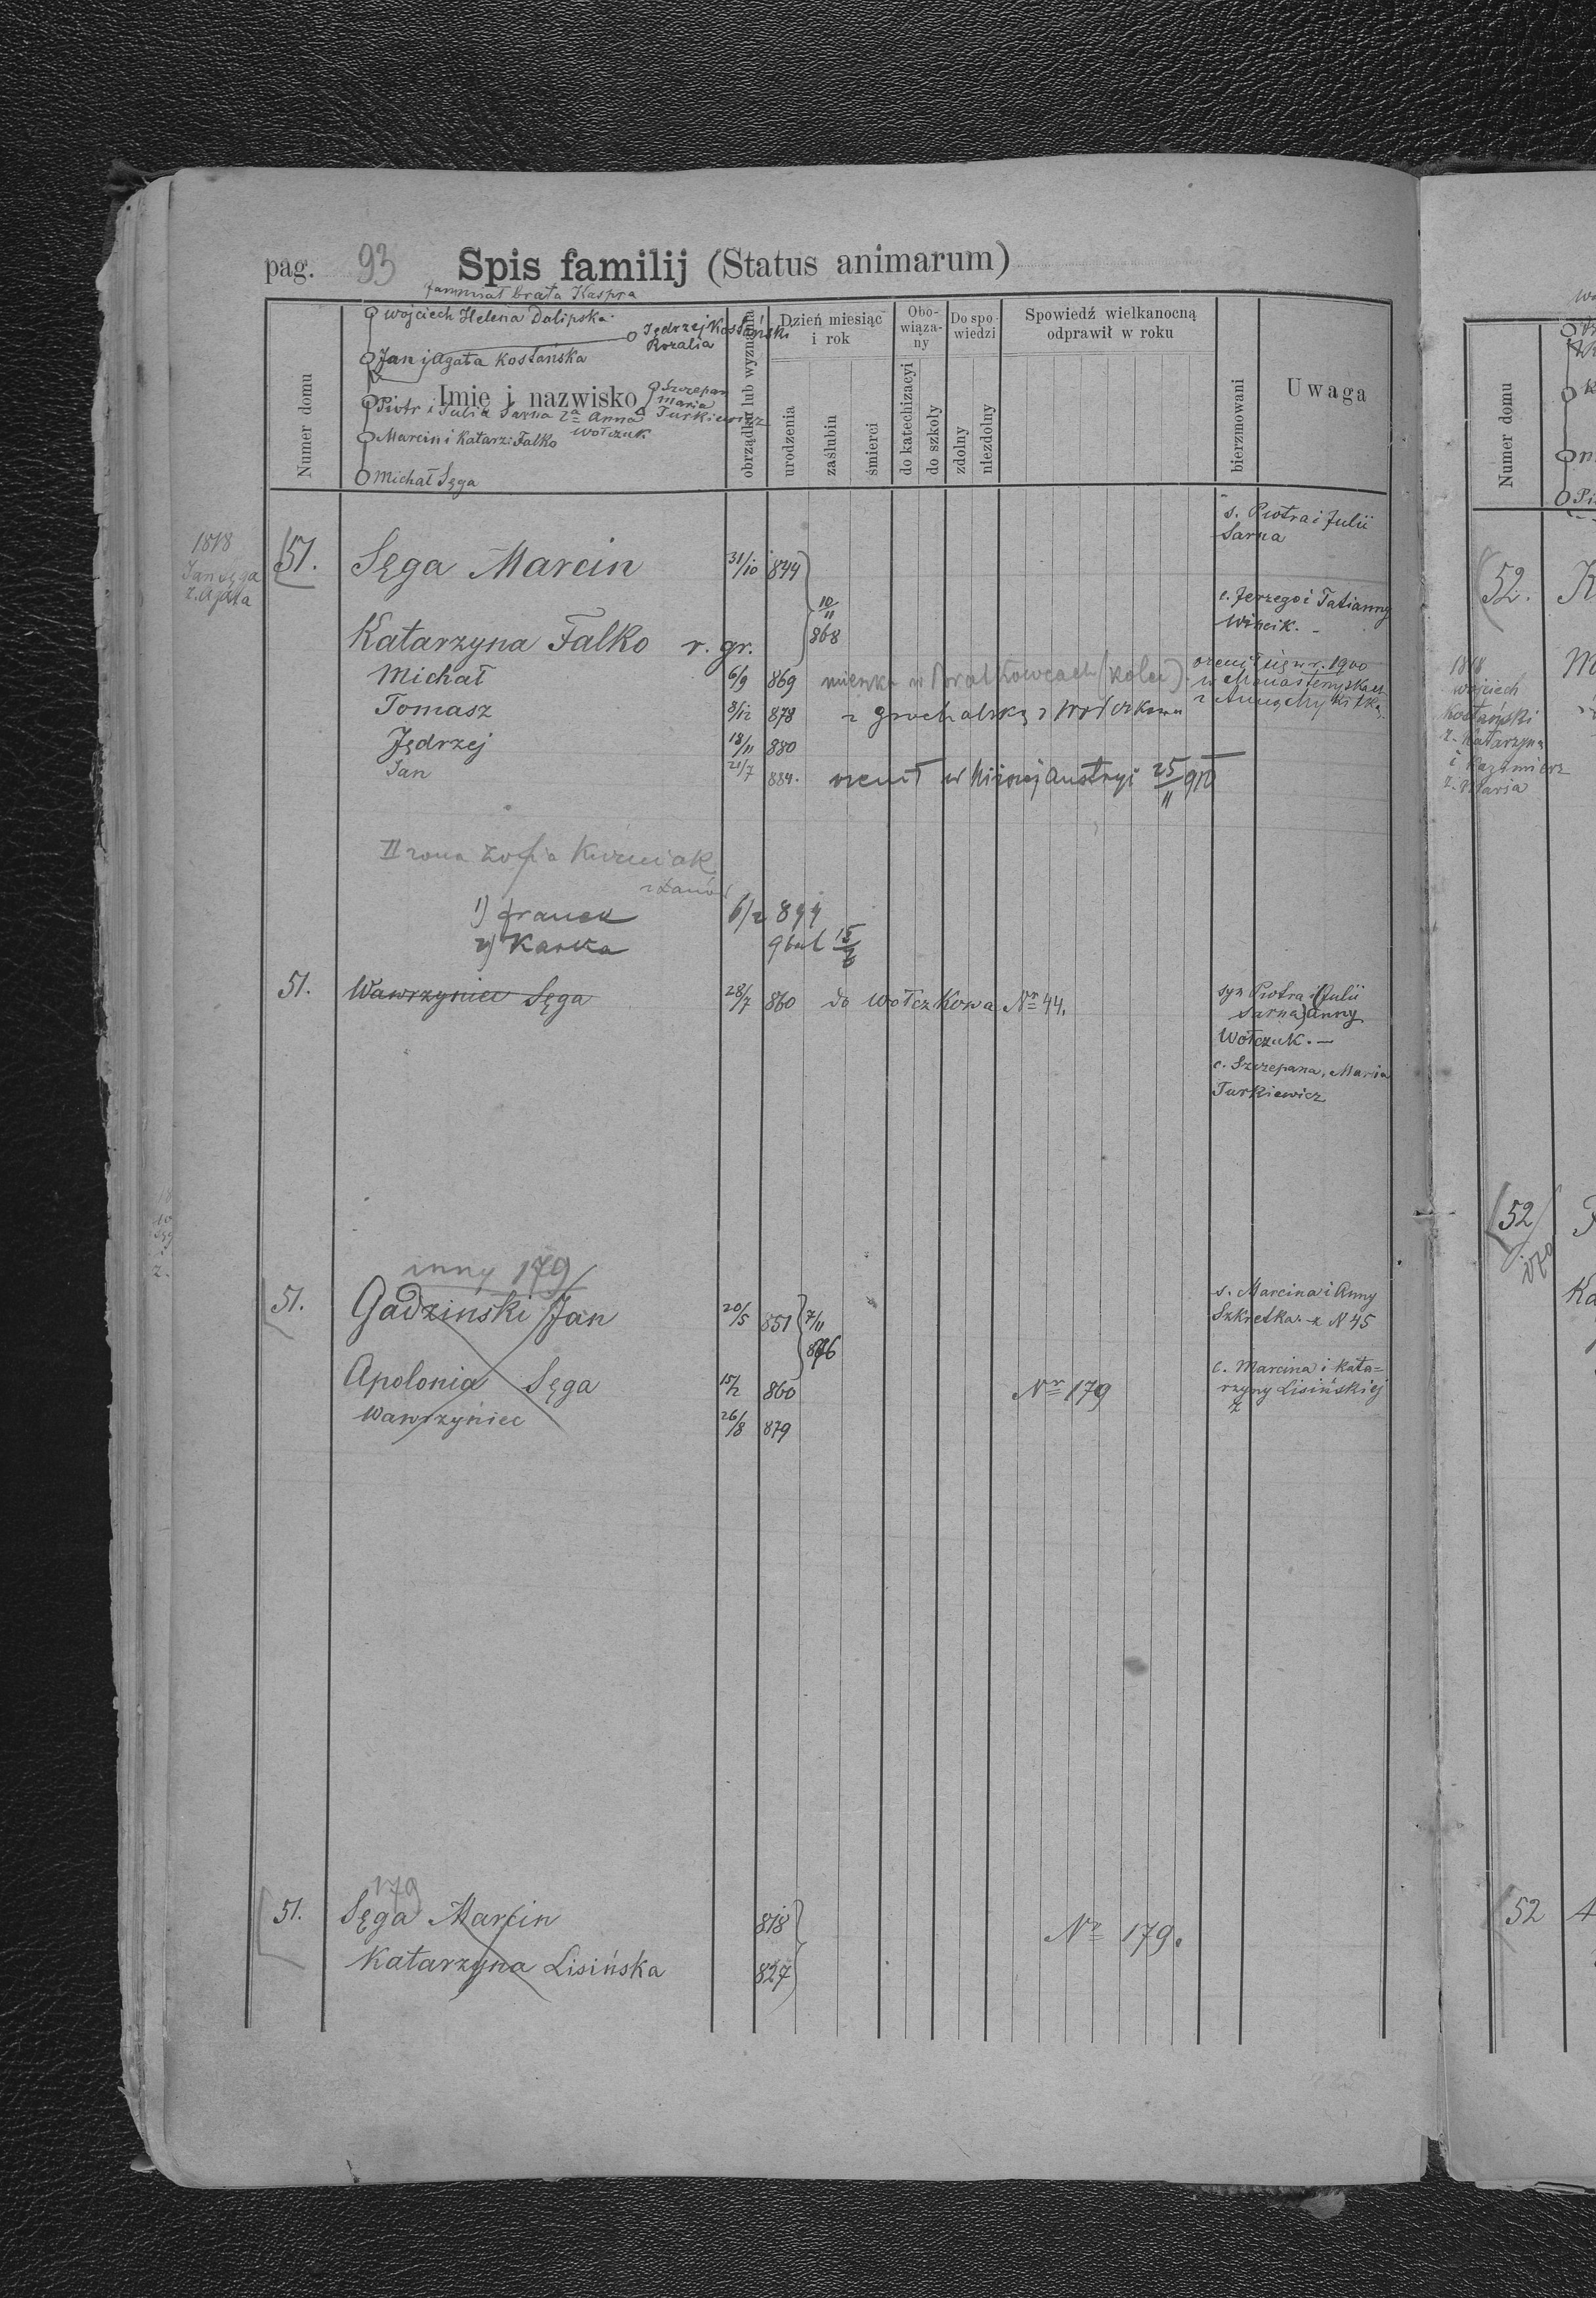 pag. 93 Spis familij (Status animarum)
brata Kaspra
Wojciech Helena Dalipska
Jędrzej Kostański
Rozalia
Jan i Agata Kostańska
Szczepan
Maria
Turkiewicz
Piotr i Julia Sarna 2a Anna
Wołczuk
Marcin i Katarz: Falko
Michał Sęga
Numer domu
Imię i nazwisko
obrządku lub wyznania
Dzień miesiąc i rok
urodzenia
zaślubin
śmierci
Obo-
wiąza-
ny
do katechizacyi
do szkoły
Do spo-
wiedzi
zdolny
niezdolny
Spowiedź wielkanocną
odprawił w roku
bierzmowani
Uwaga
1818
Jan Sęga
ż. Agata
51. Sęga Marcin 31/10 844
s. Piotra i Julii
Sarna
10/11
868
Katarzyna Falko r. gr.
c. Jerzego i Tatianny
Wincik. -
Michał 6/9 869
ożenił się w r. 1900
w Monasterzyskach
Tomasz 8/12 878
Jędrzej 18/11 880
Jan 21/7 884. ożenił w Niższej Austryi 25/11 910
II żona Zofia Kuźniak
1) Franek 6/2 899
2) Kaśka
51. Wawrzyniec Sęga 28/7 860 do Wołczkowa Nr 44.
syn Piotra i (Julii
Sarna) Anny
Wołczuk. -
c. Szczepana, Maria
Turkiewicz
inny 179
51. Gadziński Jan 20/5 851 7/11
876
s. Marcina i Anny
Szkretka. - z N 45
Apolonia Sęga 15/2 860 Nr 179
c. Marcina i Kata=
rzyny Lisińskiej
Wawrzyniec 26/8 879
179
51. Sęga Marcin 818
Nr 179.
Katarzyna Lisińska 827
Numer domu
52.
1818
Wojciech
Kostański
ż. Katarzyna
i Kazimierz
ż. Maria
52
170
52